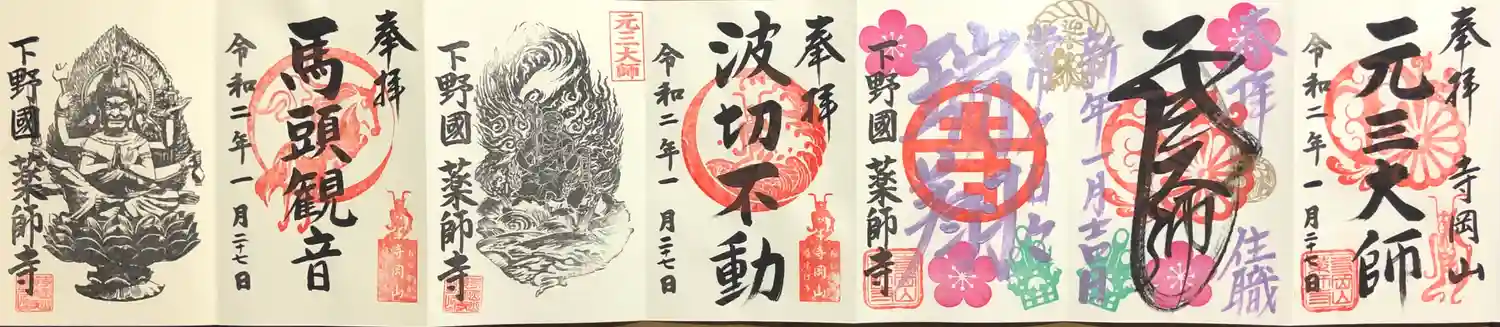 奉拝
寺岡山
元三大師
令和二年一月二十七日
奉拝
住職
新年一月吉日
瑞祥
下野國 薬師寺
奉拝
波切不動
令和二年一月二十七日
寺岡山
元三大師
下野國 薬師寺
奉拝
馬頭観音
令和二年一月二十七日
寺岡山
下野國 薬師寺